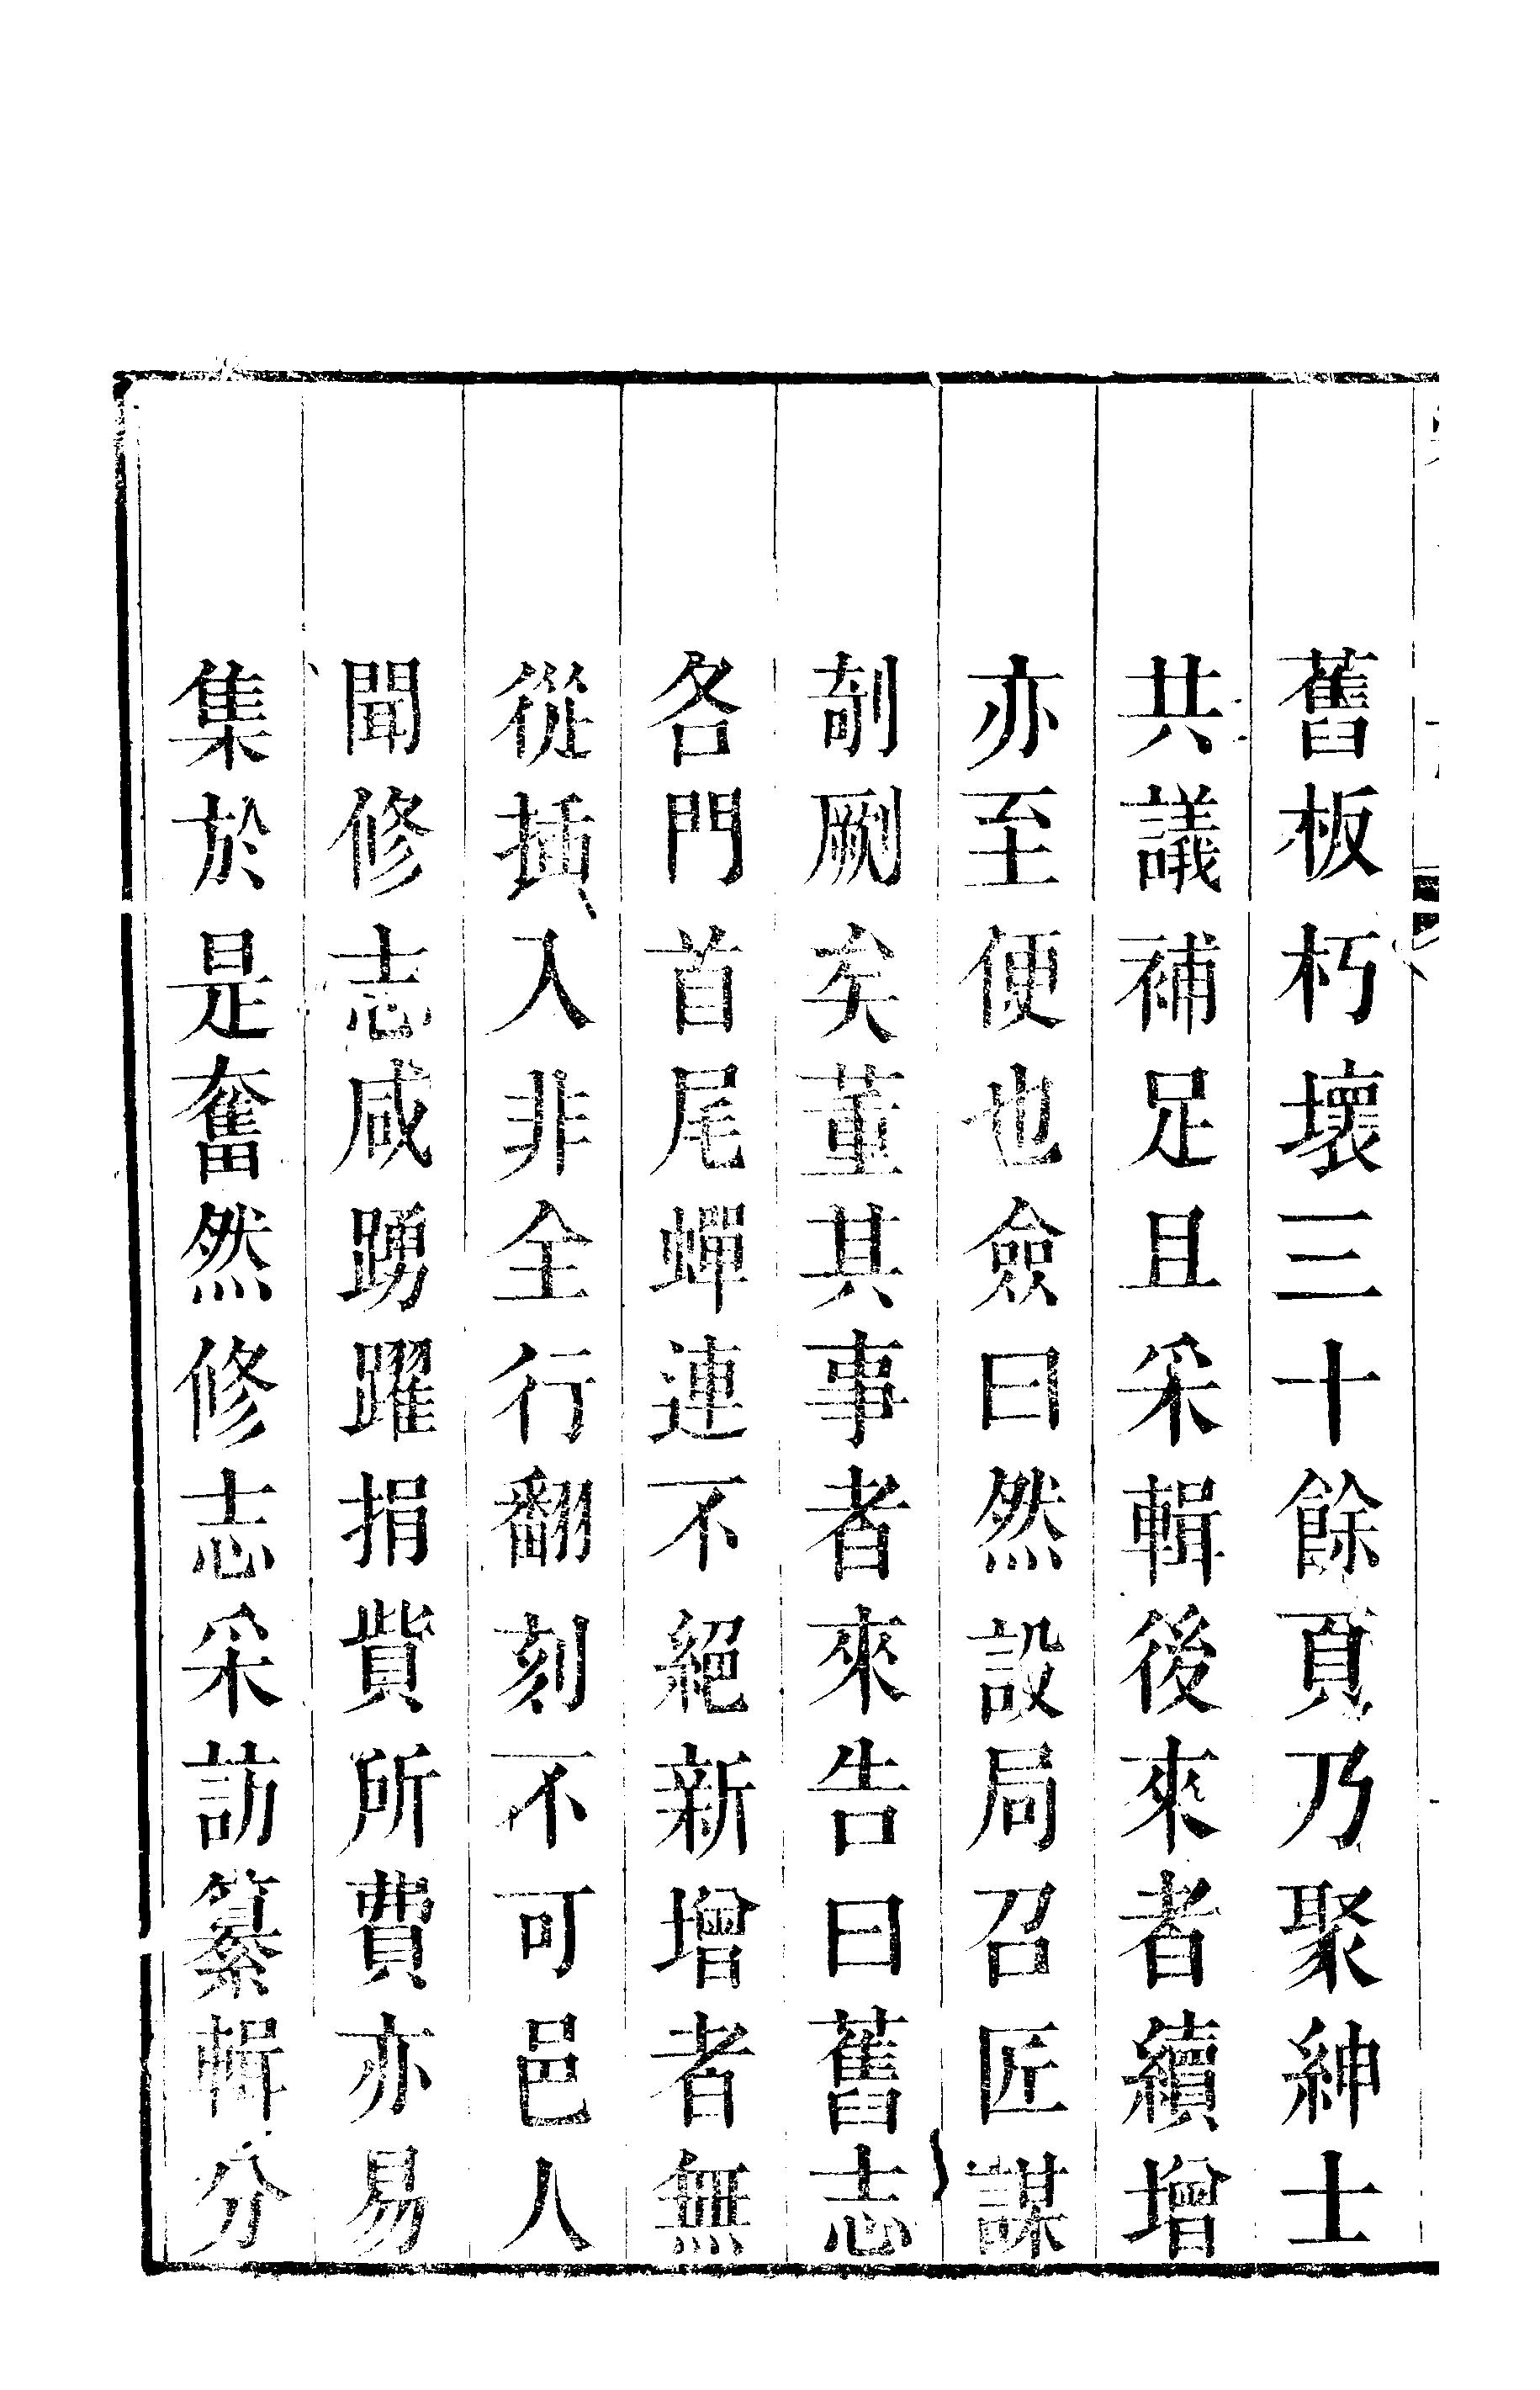 舊板朽壞三十餘頁乃聚紳士
共議補足且采輯後來者續增
亦至便也僉曰然設局召匠謀
剞劂矣董其事者來告曰舊志
各門首尾蟬連不絕新增者無
從插入非全行翻刻不可邑人
聞修志咸踴躍捐貲所費亦易
集於是奮然修志采訪纂輯分